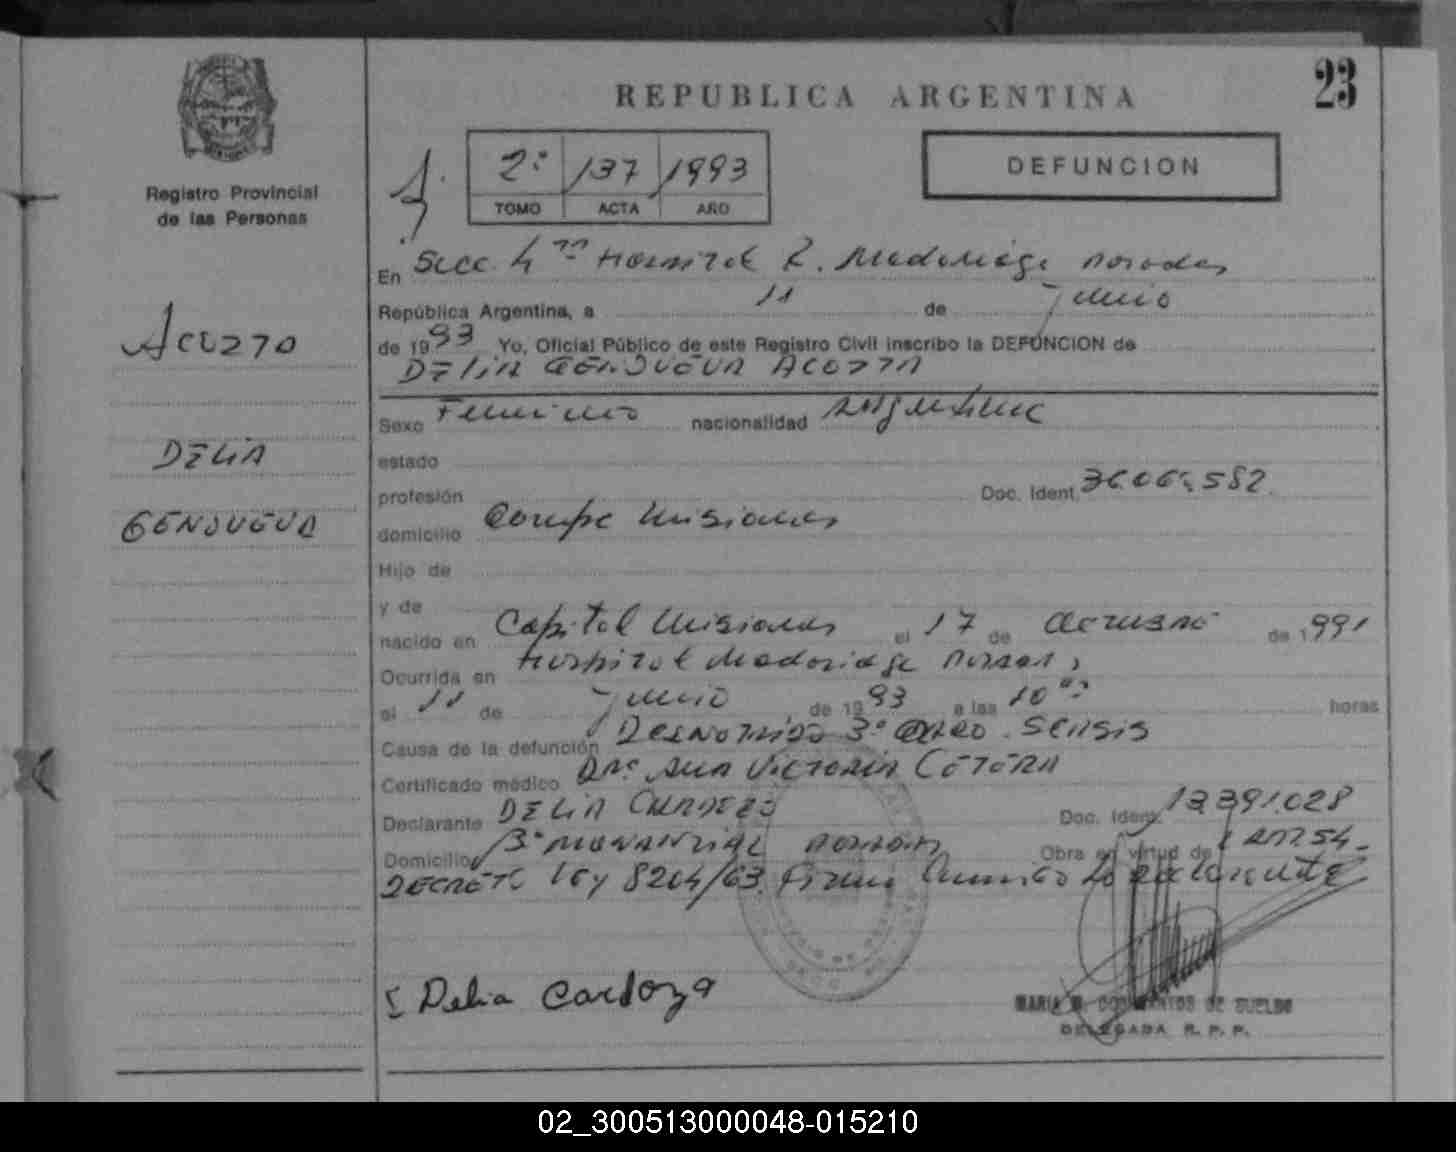 23
REPUBLICA ARGENTINA
Registro Provincial
de las Personas
2º 137 1993
TOMO ACTA AÑO
DEFUNCION
En Secc. 4ta Hospital R. Madariaga Posadas
República Argentina, a 11 de junio
de 1993 Yo, Oficial Público de este Registro Civil inscribo la DEFUNCION de
DELIA GENOVEVA ACOSTA
Acosta
DELIA
GENOVEVA
Sexo Femenino nacionalidad Argentina
estado
profesión Doc. Ident.
domicilio Misiones
Hijo de
y de
nacido en Capital Misiones el 17 de de 1991
Ocurrida en Hospital Madariaga Posadas
el 11 de junio de 1993 a las 10 horas
Causa de la defunción Desnutrición 3º Sepsis
Certificado médico Dra. Ana Victoria
Declarante DELIA Doc. Ident. 13391.028
Domicilio Posadas Obra en virtud de Art. 54
DECRETO Ley 8204/63. Firma la declarante
Delia Cardozo
DE SUELDO
DELEGADA R. P. P.
02_300513000048-015210